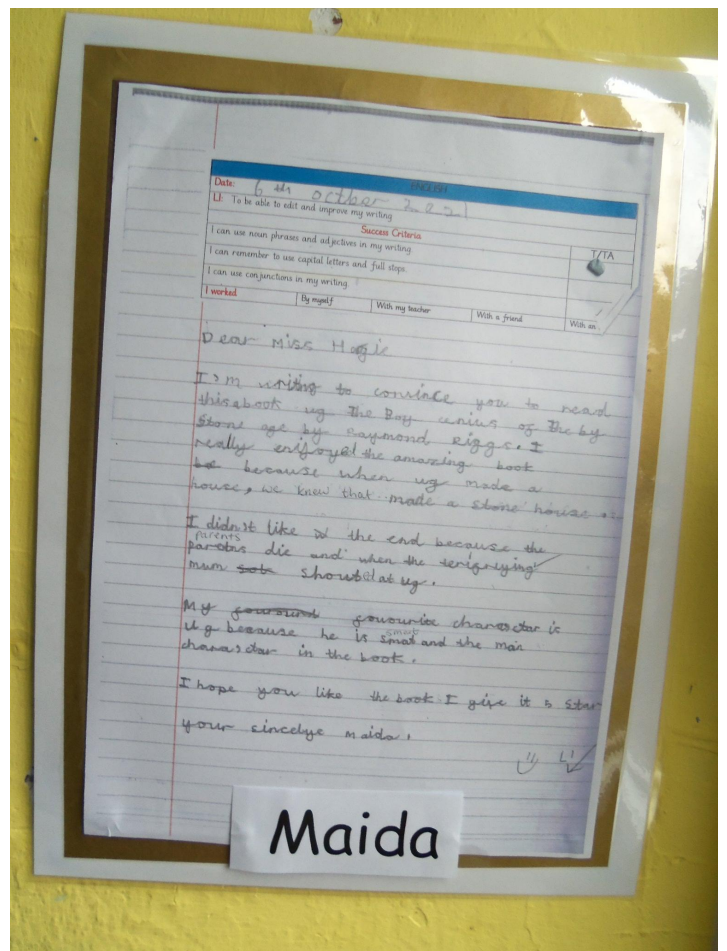 ENGLISH
Date: 6th octber 2021
LI: To be able to edit and improve my writing
Success Criteria
I can use noun phrases and adjectives in my writing.
T/TA
I can remember to use capital letters and full stops.
I can use conjunctions in my writing.
I worked By myself With my teacher With a friend With an
Dear Miss
I'm writing to convince you to read
this book ug the Boy enius of the by
Stone age by Raymond Riggs. I
really enjoyed the amazing book
because when ug made a
house, we knew that made a stone house.
I didn't like the end because the
parents
die and when the terifriying
mum showted at ug.
My favourite charactar is
ug because he is smart and the main
charactar in the book.
I hope you like the book I give it 5 star
your sincelye maida.
LI
Maida